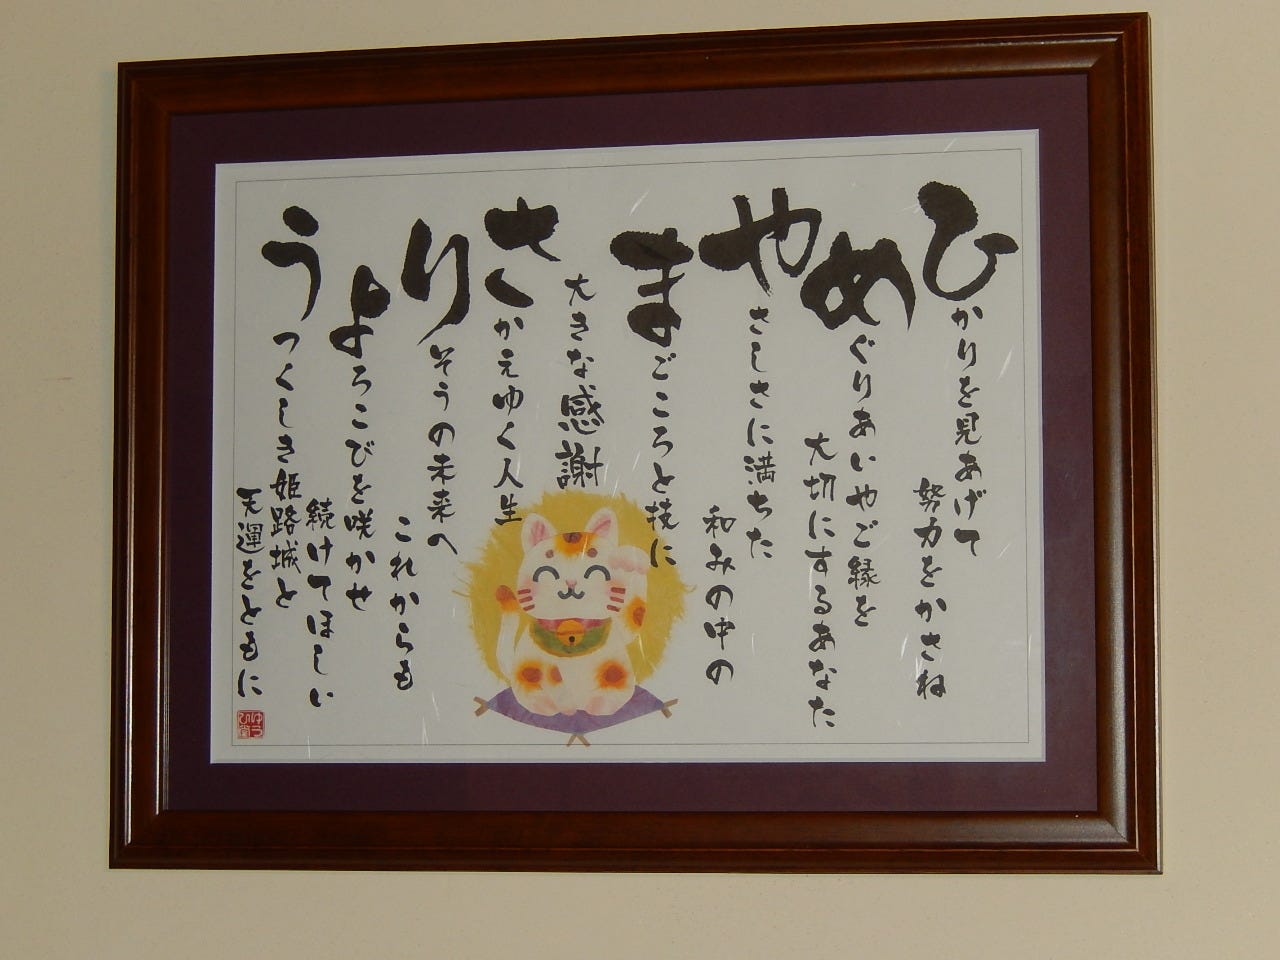 ひかりを見あげて
努力をかさね
めぐりあいやご縁を
大切にするあなた
やさしさに満ちた
和みの中の
まごころと技に
大きな感謝
さかえゆく人生
りそうの未来へ
これからも
よろこびを咲かせ
続けてほしい
うつくしき姫路城と
天運をともに